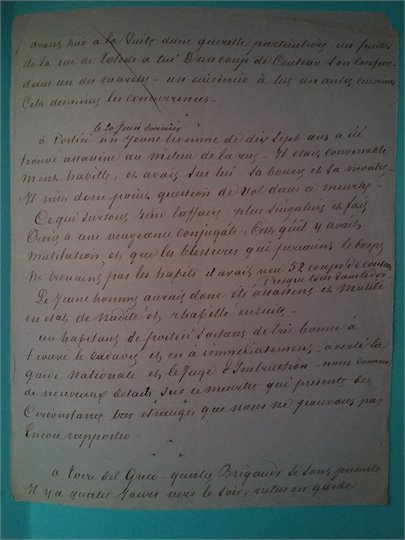 avons tué a la Suite d'une querelle particuliere - un fruitier
de la rue de Tolede a tué D'un coup de Couteau Son Compere
dans un des marchés - un cuisinier a tué un autre cuisinier
Cela diminue les concurrences -
le 20 juin dernier
à Portici un jeune homme de dix Sept ans a été
trouvé assassiné au milieu de la rue - Il etait convenable
ment habillé, et avait sur lui - Sa bourse et Sa montre -
Il n'est donc point question de vol dans ce meurtre -
Ce qui surtout rend l'affaire plus singuliere et fait
Croire a une vengeance conjugale, C'est qu'il y avait
mutilation et que les blessures qui percaient le Corps
ne trouaient pas les habits il avait reçu 52 coups de couteau,
presque tous dans le dos -
Le jeune homme aurait donc été assassiné et mutilé
en etat de nudité et rhabillé ensuite -
un habitant de portici sortant de bonne
trouve le cadavre et en a immediatement averti la
garde nationale et le juge d'Instruction - nous donnerons
de nouveaux details Sur ce meurtre qui presente des
Circonstances tres etranges que nous ne pouvons pas
Encore rapporter -
a torre del Greco - quatre Brigands se sont presentés
Il y a quatre jours vers le Soir, vetus en garde